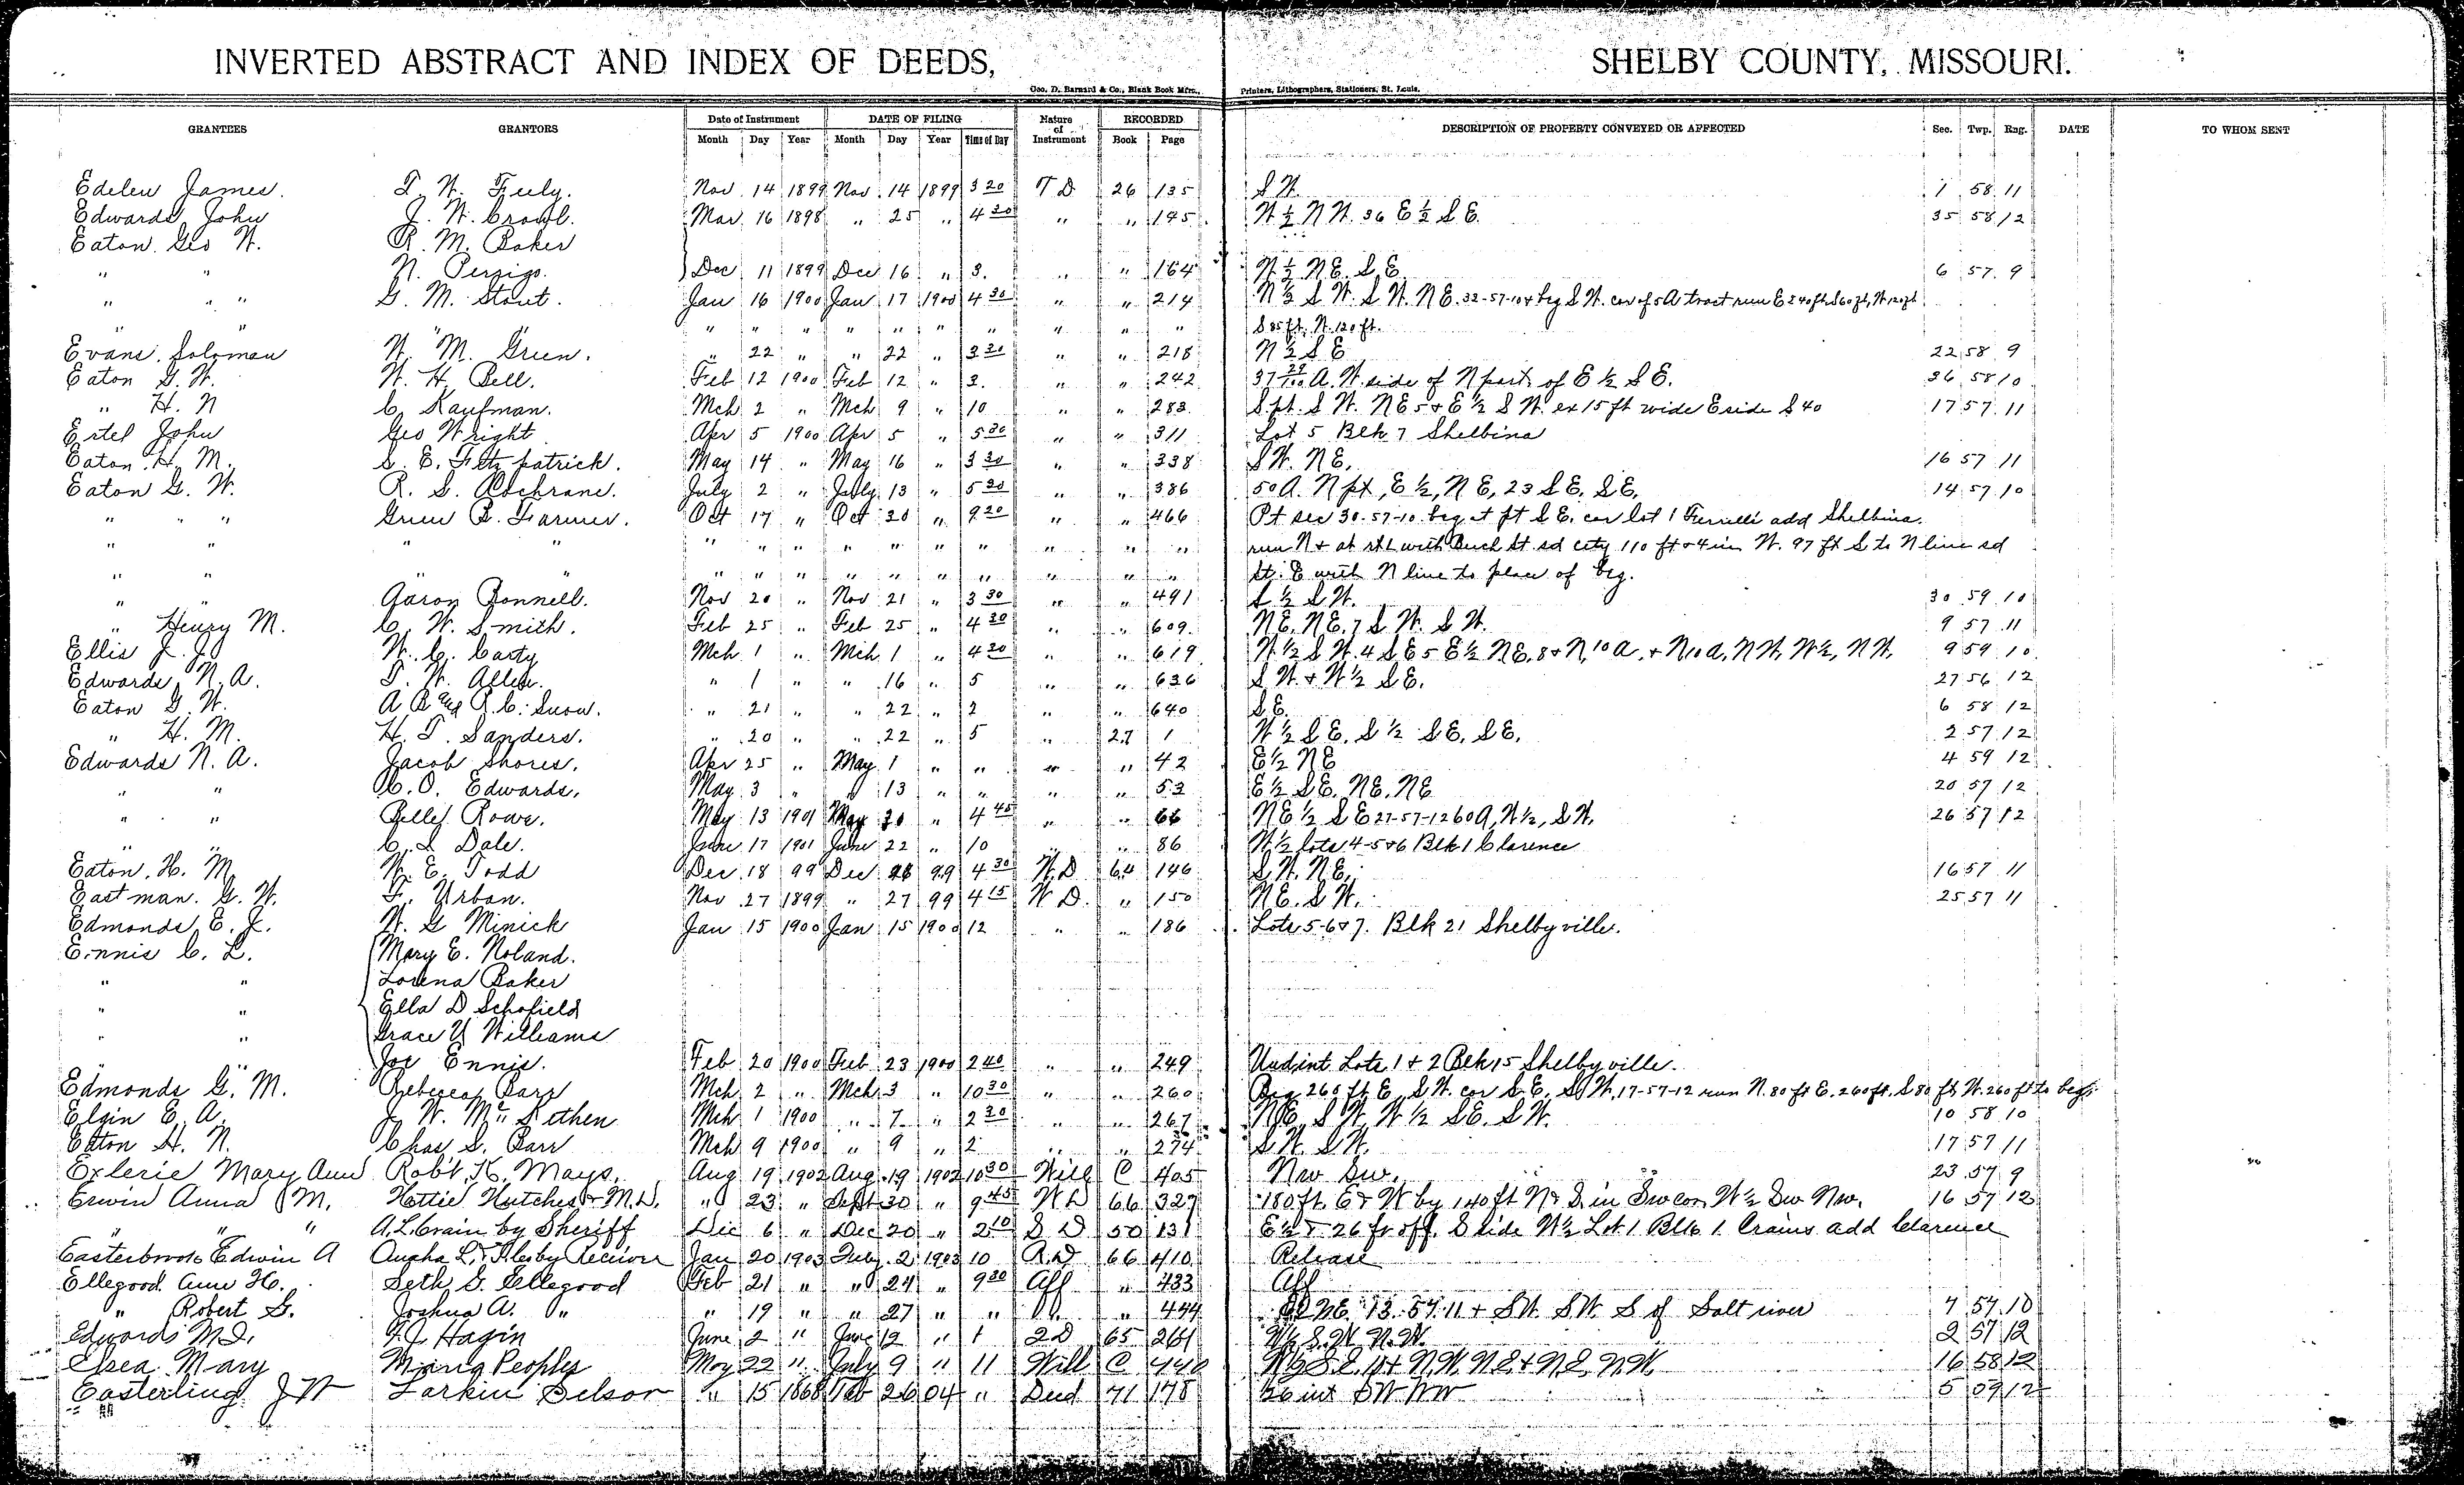 INVERTED ABSTRACT AND INDEX OF DEEDS, SHELBY COUNTY, MISSOURI.
Geo. D. Barnard & Co., Blank Book Mfrs., Printers, Lithographers, Stationers, St. Louis.
GRANTEES GRANTORS Date of Instrument DATE OF FILING Nature of Instrument RECORDED DESCRIPTION OF PROPERTY CONVEYED OR AFFECTED Sec. Twp. Rng. DATE TO WHOM SENT
Month Day Year Month Day Year Time of Day Book Page
Edelen James. T. W. Freely. Nov 14 1899 Nov. 14 1899 3 20 T D 26 135 S W. 1 58 11
Edwards John J. W. Crowl. Mar 16 1898 " 25 " 4 30 " " 145 W ½ N W. 36 E ½ S E. 35 58 12
Eaton Geo W. R. M. Baker
" " N. Persigo. Dec 11 1899 Dec 16 " 3. " " 164 W ½ N E. S E. 6 57 9
" " " G. M. Stout. Jan 16 1900 Jan 17 1900 4 30 " " 214 N ½ S W. S W. N E. 32-57-10 & beg S W. cor of 5 A tract run E 240 ft, S 60 ft, W 120 ft
" " " " " " " " " " " " " S 85 ft. W. 120 ft.
Evans. Soloman W. M. Green. " 22 " " 22 " 3 30 " " 218 N ½ S E 22 58 9
Eaton G. W. W. H. Bell. Feb 12 1900 Feb 12 " 3. " " 242 A. W. side of N part of E ½ S E. 36 58 10
" H. N C. Kaufman. Mch 2 " Mch 9 " 10 " " 283 S. pt. S W. N E 5 & E ½ S W. ex 15 ft wide E side S 40 17 57 11
Ertel John Geo Wright Apr 5 1900 Apr 5 " 5 30 " " 311 Lot 5 Blk 7 Shelbina
Eaton. H. M. S. E. Fitzpatrick. May 14 " May 16 " 3 30 " " 338 S W. N E. 16 57 11
Eaton G. W. R. S. Cochrane. July 2 " July 13 " 5 30 " " 386 50 A. N pt, E ½, N E, 23 S E. S E. 14 57 10
" " " Green B. Farmer. Oct 17 " Oct 20 " 9 20 " " 466 Pt sec 30-57-10 beg at pt S E. cor lot 1 add Shelbina.
" " " " " " " " " " " " " " run N & at rt L with St sd city 110 ft & 4 in W. 97 ft S to N line sd
" " " " " " " " " " " " " " St. E with N line to place of beg.
" " Aaron Bonnell. Nov 20 " Nov 21 " 3 30 " " 491 S ½ S W. 30 59 10
" Henry M. C. W. Smith. Feb 25 " Feb 25 " 4 30 " " 609 N E. N E. 7 S W. S W. 9 57 11
Ellis J. W. C. Carty Mch 1 " Mch 1 " 4 30 " " 619 W ½ S W. 4 S E 5 E ½ N E. 8 & N 10 a. & N 10 a, N W, W ½, N W. 9 59 10
Edwards N. A. T. W. Allen. " 1 " " 16 " 5 " " 636 S W. & W ½ S E. 27 56 12
Eaton G. W. A B R. C. Snow. " 21 " " 22 " 2 " " 640 S E. 6 58 12
" H. M. H. T. Sanders. " 20 " " 22 " 5 " 27 1 W ½ S E. S ½ S E. S E. 2 57 12
Edwards N. A. Jacob Shores. Apr 25 " May 1 " " " " 42 E ½ N E 4 59 12
" " C. O. Edwards. May 3 " " 13 " " " " 53 E ½ S E. N E. N E 20 57 12
" " Rowe. May 13 1901 May 20 " 4 45 " " 66 N E ½ S E 27-57-12 60 A, W ½, S W. 26 57 12
" " C. L Dale. June 17 1901 June 22 " 10 " " 86 W ½ lots 4-5 & 6 Blk 1 Clarence
Eaton. H. M. W. E. Todd Dec 18 99 Dec 99 4 30 W. D 64 146 S W. N E. 16 57 11
Eastman. G. W. F. Urban. Nov 27 1899 " 27 99 4 15 W D. " 150 N E. S W. 25 57 11
Edmonds E. J. W. G Minick Jan 15 1900 Jan 15 1900 12 " " 186 Lots 5-6 & 7. Blk 21 Shelbyville.
Ennis C. L. Mary E. Noland.
" " Lorena Baker
" " Ella D Schofield
" " Grace Y Williams
" " Joe Ennis. Feb 20 1900 Feb 23 1900 2 40 " " 249 Und int Lots 1 & 2 Blk 15 Shelbyville.
Edmonds G. M. Rebecca Barr Mch 2 " Mch 3 " 10 30 " " 260 Beg 260 ft E. S. W. cor S. E. S W. 17-57-12 run N. 80 ft E. 260 ft. S 80 ft, W. 260 ft to beg.
Elgin E. A. J. W. Mch 1 1900 " 7 " 2 30 " " 267 N E. S W. W ½ S E. S W. 10 58 10
Eaton H. N. Chas S. Barr Mch 9 1900 " 9 " 2 " " 274 S W. S W. 17 57 11
Exlerie Mary Ann Robt. K. Mays. Aug 19 1902 Aug 19 1902 10 30 Will C 405 Nw Sw. 23 57 9
Erwin Anna M. Hettie Hutches & M. D. " 23 " Sept 30 " 9 45 W D 66 327 180 ft. E & W by 140 ft N & S in Sw cor W ½ Sw Nw. 16 57 12
" " " A. L. Crain by Sheriff Dec 6 " Dec 20 " 2 10 S. D 50 131 E ½ & 26 ft off S side W ½ Lot 1 Blk 1. Crains add Clarence
Easterbrook Edwin A by Receiver Jan 20 1903 Feby. 2 1903 10 R. D 66 410 Release
Ellegood Ann H. Seth G. Ellegood Feb 21 " " 24 " 9 30 Aff " 433 Aff
" Robert G. Joshua A. " " 19 " " 27 " " " 444 N E. 13. 57. 11 & S W. S W. S of Salt river 7 57 10
Edwards M. D. Hagin June 2 " June 12 " 1 2 D 65 261 W ½ S. W. N. W. 2 57 12
Elsea Mary Peoples May 22 " July 9 " 11 Will C 440 W ½ S. E. N. W. N. E. & N. E. N. W. 16 58 12
Easterling J W Larkin Selson " 15 1868 Feb 26 04 " Deed 71 178 int S W. N W 5 12